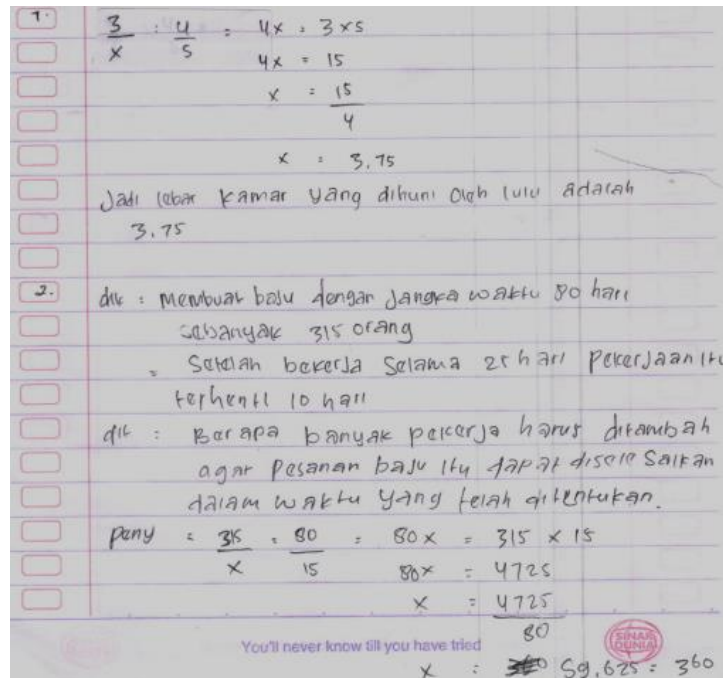 1. 3/x : 4/5 = 4x = 3 x 5
4x = 15
x = 15/4
x = 3.75
Jadi lebar kamar yang dihuni oleh lulu adalah
3.75
2. dik : Membuat baju dengan jangka waktu 80 hari
sebanyak 315 orang
= Setelah bekerja selama 25 hari pekerjaan itu
terhenti 10 hari
dit : Berapa banyak pekerja harus ditambah
agar pesanan baju itu dapat diselesaikan
dalam waktu yang telah ditentukan.
peny = 315/x = 80/15 = 80x = 315 x 15
80x = 4725
x = 4725/80
You'll never know till you have tried
SINAR DUNIA
x = 59,625 = 360